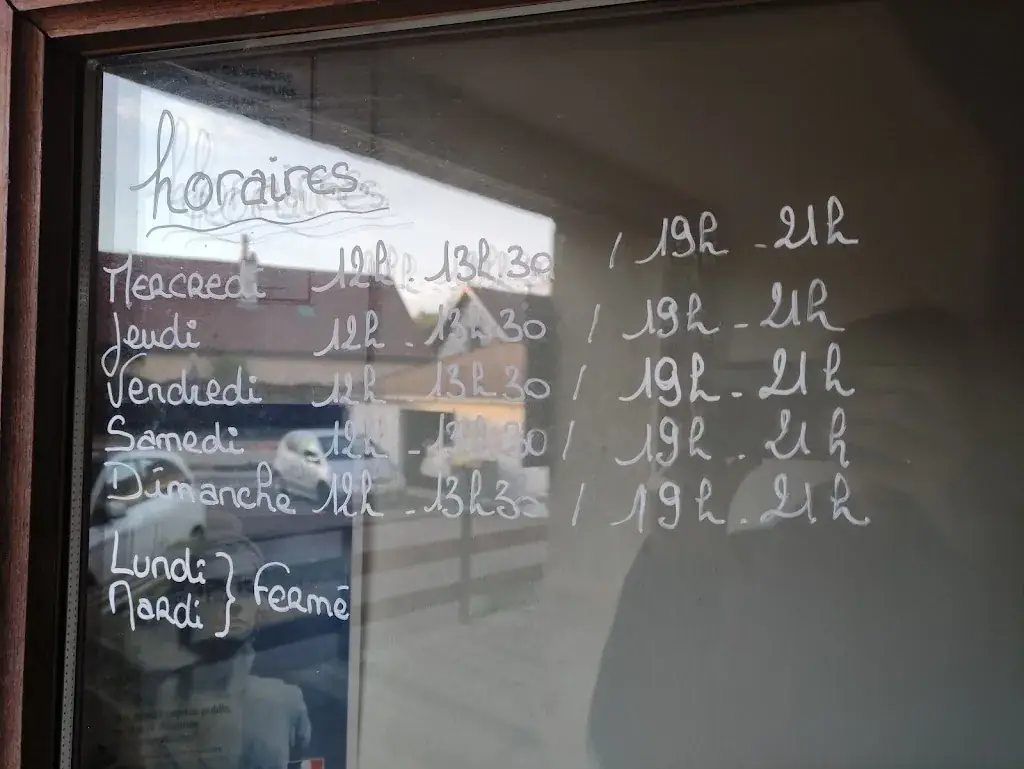 horaires
Mercredi 12h - 13h30 / 19h - 21h
Jeudi 12h - 13h30 / 19h - 21h
Vendredi 12h - 13h30 / 19h - 21h
Samedi 12h - 13h30 / 19h - 21h
Dimanche 12h - 13h30 / 19h - 21h
Lundi
Mardi } Fermé